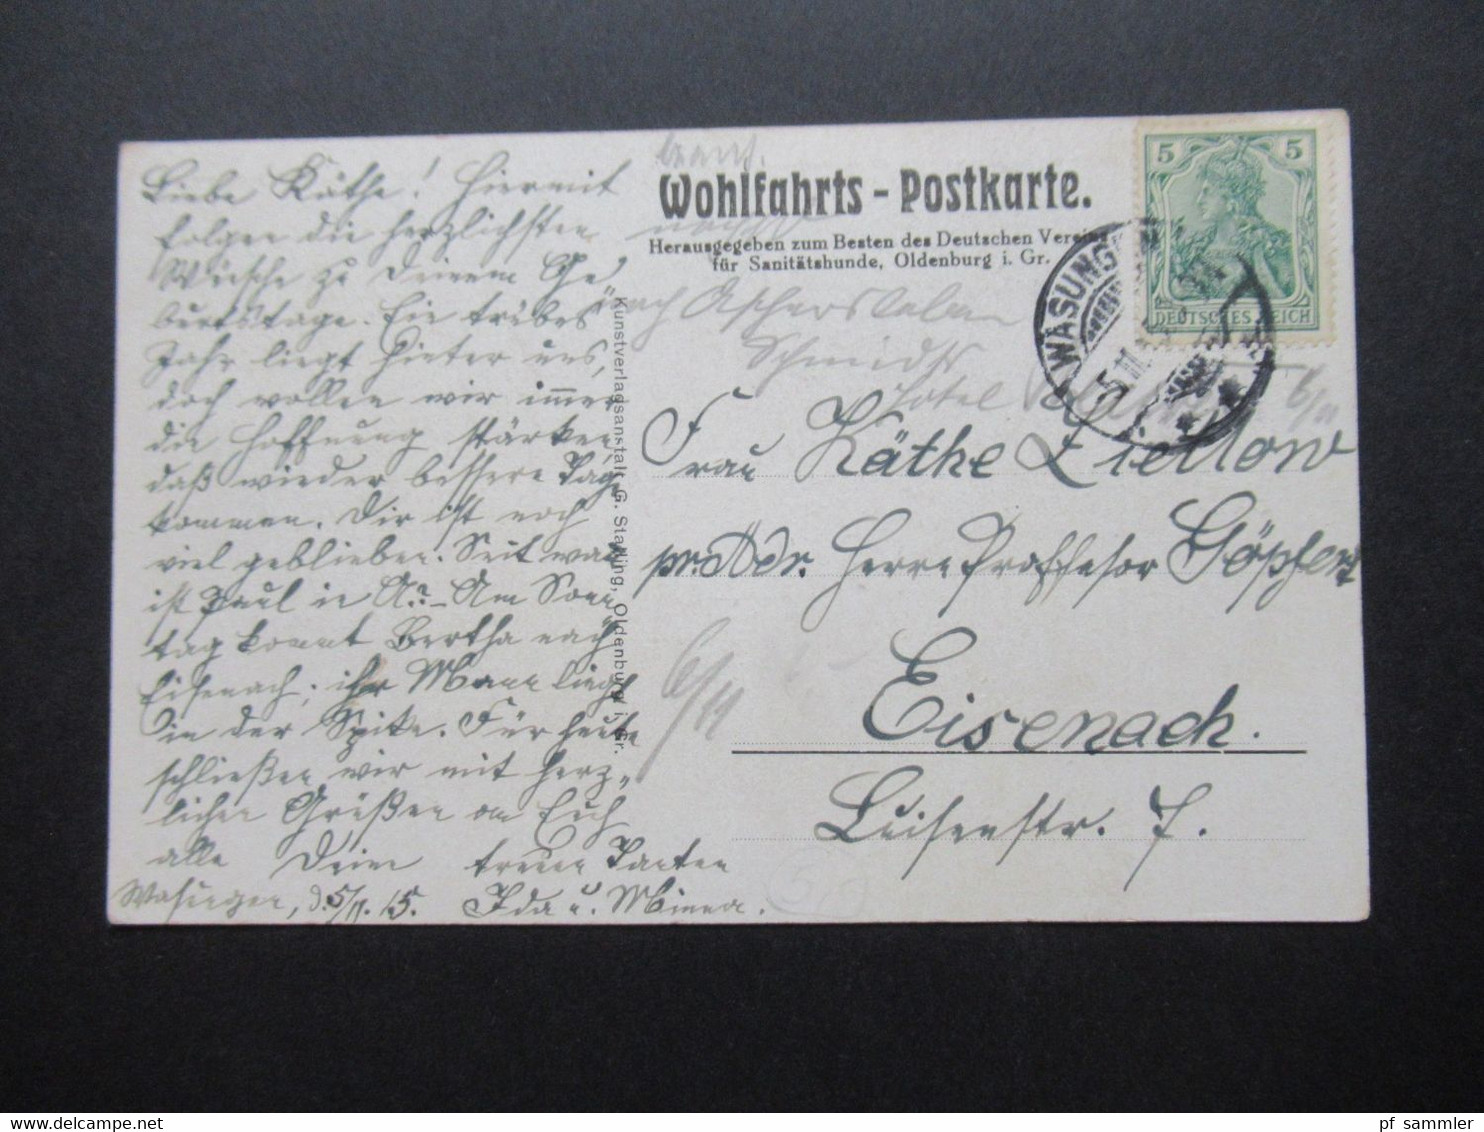 Liebe Käthe! Hiermit
folgen die herzlichsten
Wünsche zu Deinem Ge-
burtstage. Ein trübes
Jahr liegt hinter uns,
doch wollen wir immer
die Hoffnung stärken
daß wieder bessere Tage
kommen. Dir ist noch
viel geblieben. Seit wann
ist Paul in A.? – Am Sonn
tag kommt Bertha nach
Eisenach; ihr Mann liegt
in der Spitze. Für heute
schließen wir mit herz-
lichen Grüßen an Euch
alle Deine treuen Tanten
Wasungen, d. 5/11. 15. Ida u. Minna.
Kunstverlagsanstalt G. Stalling, Oldenburg i. Gr.
Wohlfahrts - Postkarte.
Herausgegeben zum Besten des Deutschen Vereins
für Sanitätshunde, Oldenburg i. Gr.
nach Aschersleben
Schmidts
Hotel
6/11
5 5
DEUTSCHES REICH
WASUNGEN
5.11.
Frau Käthe Ziellow
pr. Adr. Herrn Professor Göpfert
Eisenach.
Luisenstr. 7.
6/11